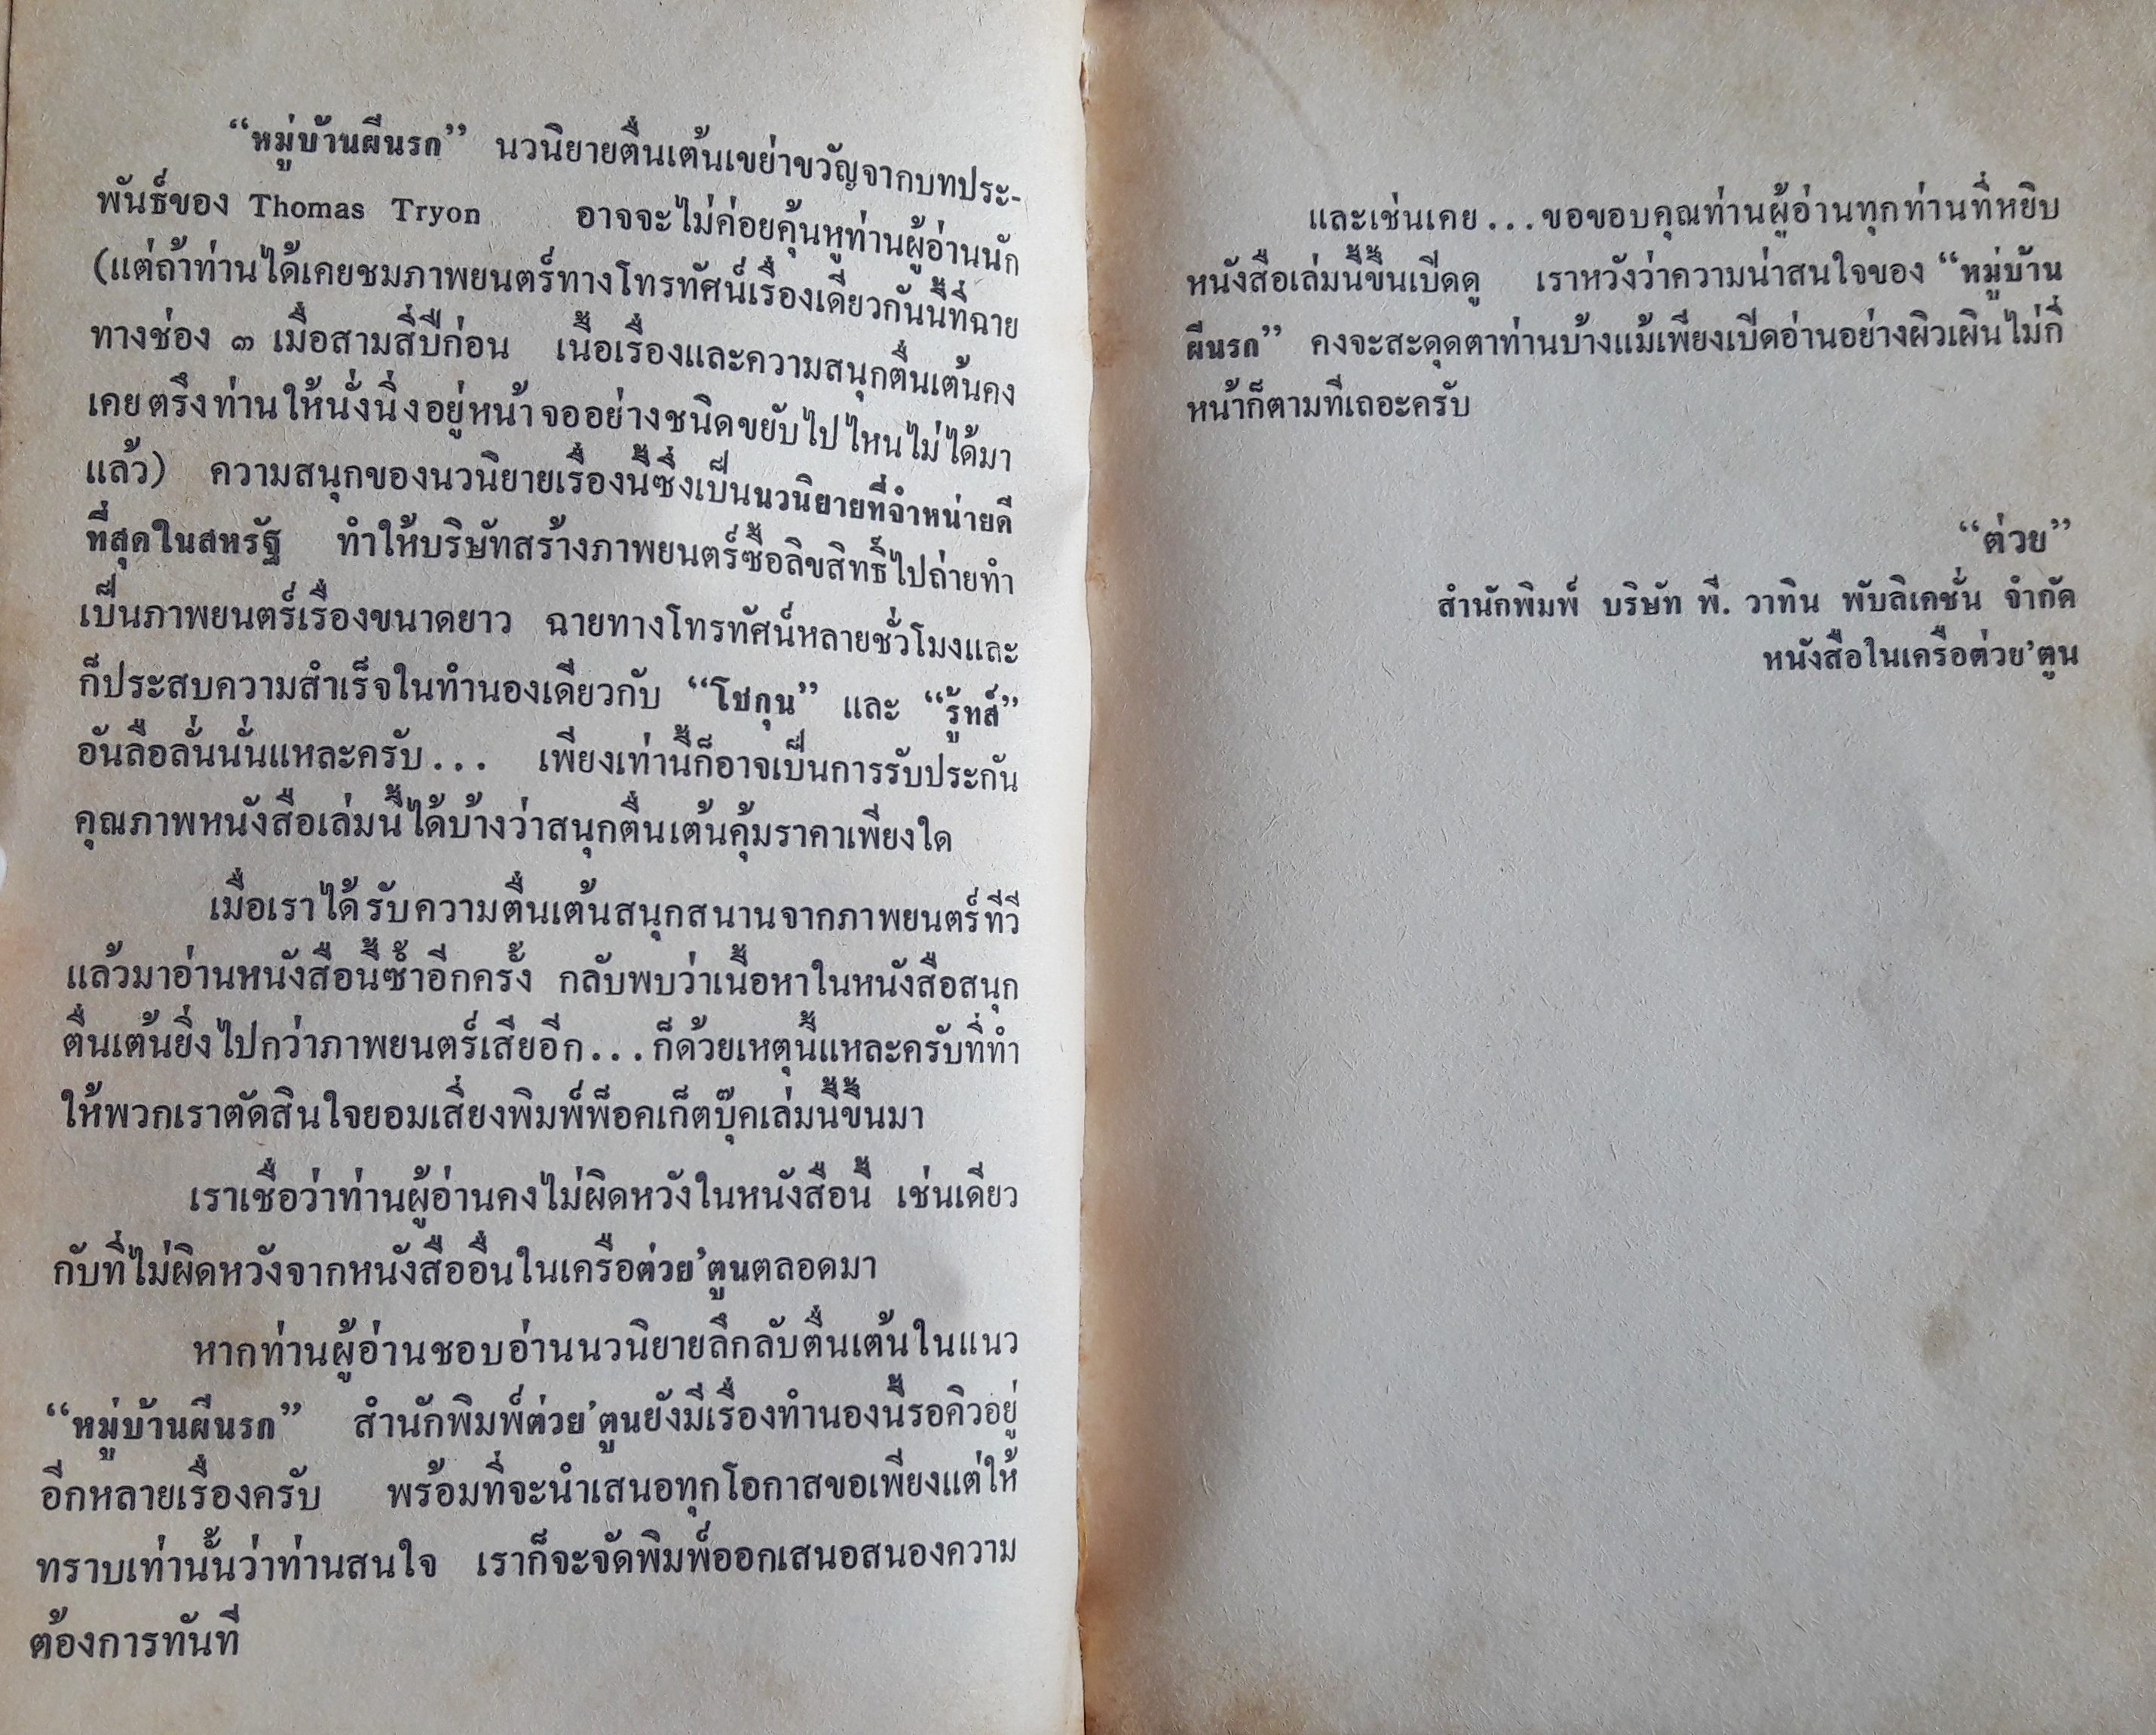 “หมู่บ้านผีนรก” นวนิยายตื่นเต้นเขย่าขวัญจากบทประ-
พันธ์ของ Thomas Tryon อาจจะไม่ค่อยคุ้นหูท่านผู้อ่านนัก
(แต่ถ้าท่านได้เคยชมภาพยนตร์ทางโทรทัศน์เรื่องเดียวกันนี้ที่ฉาย
ทางช่อง ๓ เมื่อสามสี่ปีก่อน เนื้อเรื่องและความสนุกตื่นเต้นคง
เคยตรึงท่านให้นั่งนิ่งอยู่หน้าจออย่างชนิดขยับไปไหนไม่ได้มา
แล้ว) ความสนุกของนวนิยายเรื่องนี้ซึ่งเป็นนวนิยายที่จำหน่ายดี
ที่สุดในสหรัฐ ทำให้บริษัทสร้างภาพยนตร์ซื้อลิขสิทธิ์ไปถ่ายทำ
เป็นภาพยนตร์เรื่องขนาดยาว ฉายทางโทรทัศน์หลายชั่วโมงและ
ก็ประสบความสำเร็จในทำนองเดียวกับ “โชกุน” และ “รู้ทส์”
อันลือลั่นนั่นแหละครับ... เพียงเท่านี้ก็อาจเป็นการรับประกัน
คุณภาพหนังสือเล่มนี้ได้บ้างว่าสนุกตื่นเต้นคุ้มราคาเพียงใด
เมื่อเราได้รับความตื่นเต้นสนุกสนานจากภาพยนตร์ทีวี
แล้วมาอ่านหนังสือนี้ซ้ำอีกครั้ง กลับพบว่าเนื้อหาในหนังสือสนุก
ตื่นเต้นยิ่งไปกว่าภาพยนตร์เสียอีก...ก็ด้วยเหตุนี้แหละครับที่ทำ
ให้พวกเราตัดสินใจยอมเสี่ยงพิมพ์พ็อคเก็ตบุ๊คเล่มนี้ขึ้นมา
เราเชื่อว่าท่านผู้อ่านคงไม่ผิดหวังในหนังสือนี้ เช่นเดียว
กับที่ไม่ผิดหวังจากหนังสืออื่นในเครือต่วย’ตูนตลอดมา
หากท่านผู้อ่านชอบอ่านนวนิยายลึกลับตื่นเต้นในแนว
“หมู่บ้านผีนรก” สำนักพิมพ์ต่วย’ตูนยังมีเรื่องทำนองนี้รอคิวอยู่
อีกหลายเรื่องครับ พร้อมที่จะนำเสนอทุกโอกาสขอเพียงแต่ให้
ทราบเท่านั้นว่าท่านสนใจ เราก็จะจัดพิมพ์ออกเสนอสนองความ
ต้องการทันที
และเช่นเคย...ขอขอบคุณท่านผู้อ่านทุกท่านที่หยิบ
หนังสือเล่มนี้ขึ้นเปิดดู เราหวังว่าความน่าสนใจของ “หมู่บ้าน
ผีนรก” คงจะสะดุดตาท่านบ้างแม้เพียงเปิดอ่านอย่างผิวเผินไม่กี่
หน้าก็ตามทีเถอะครับ
“ต่วย”
สำนักพิมพ์ บริษัท พี. วาทิน พับลิเคชั่น จำกัด
หนังสือในเครือต่วย’ตูน